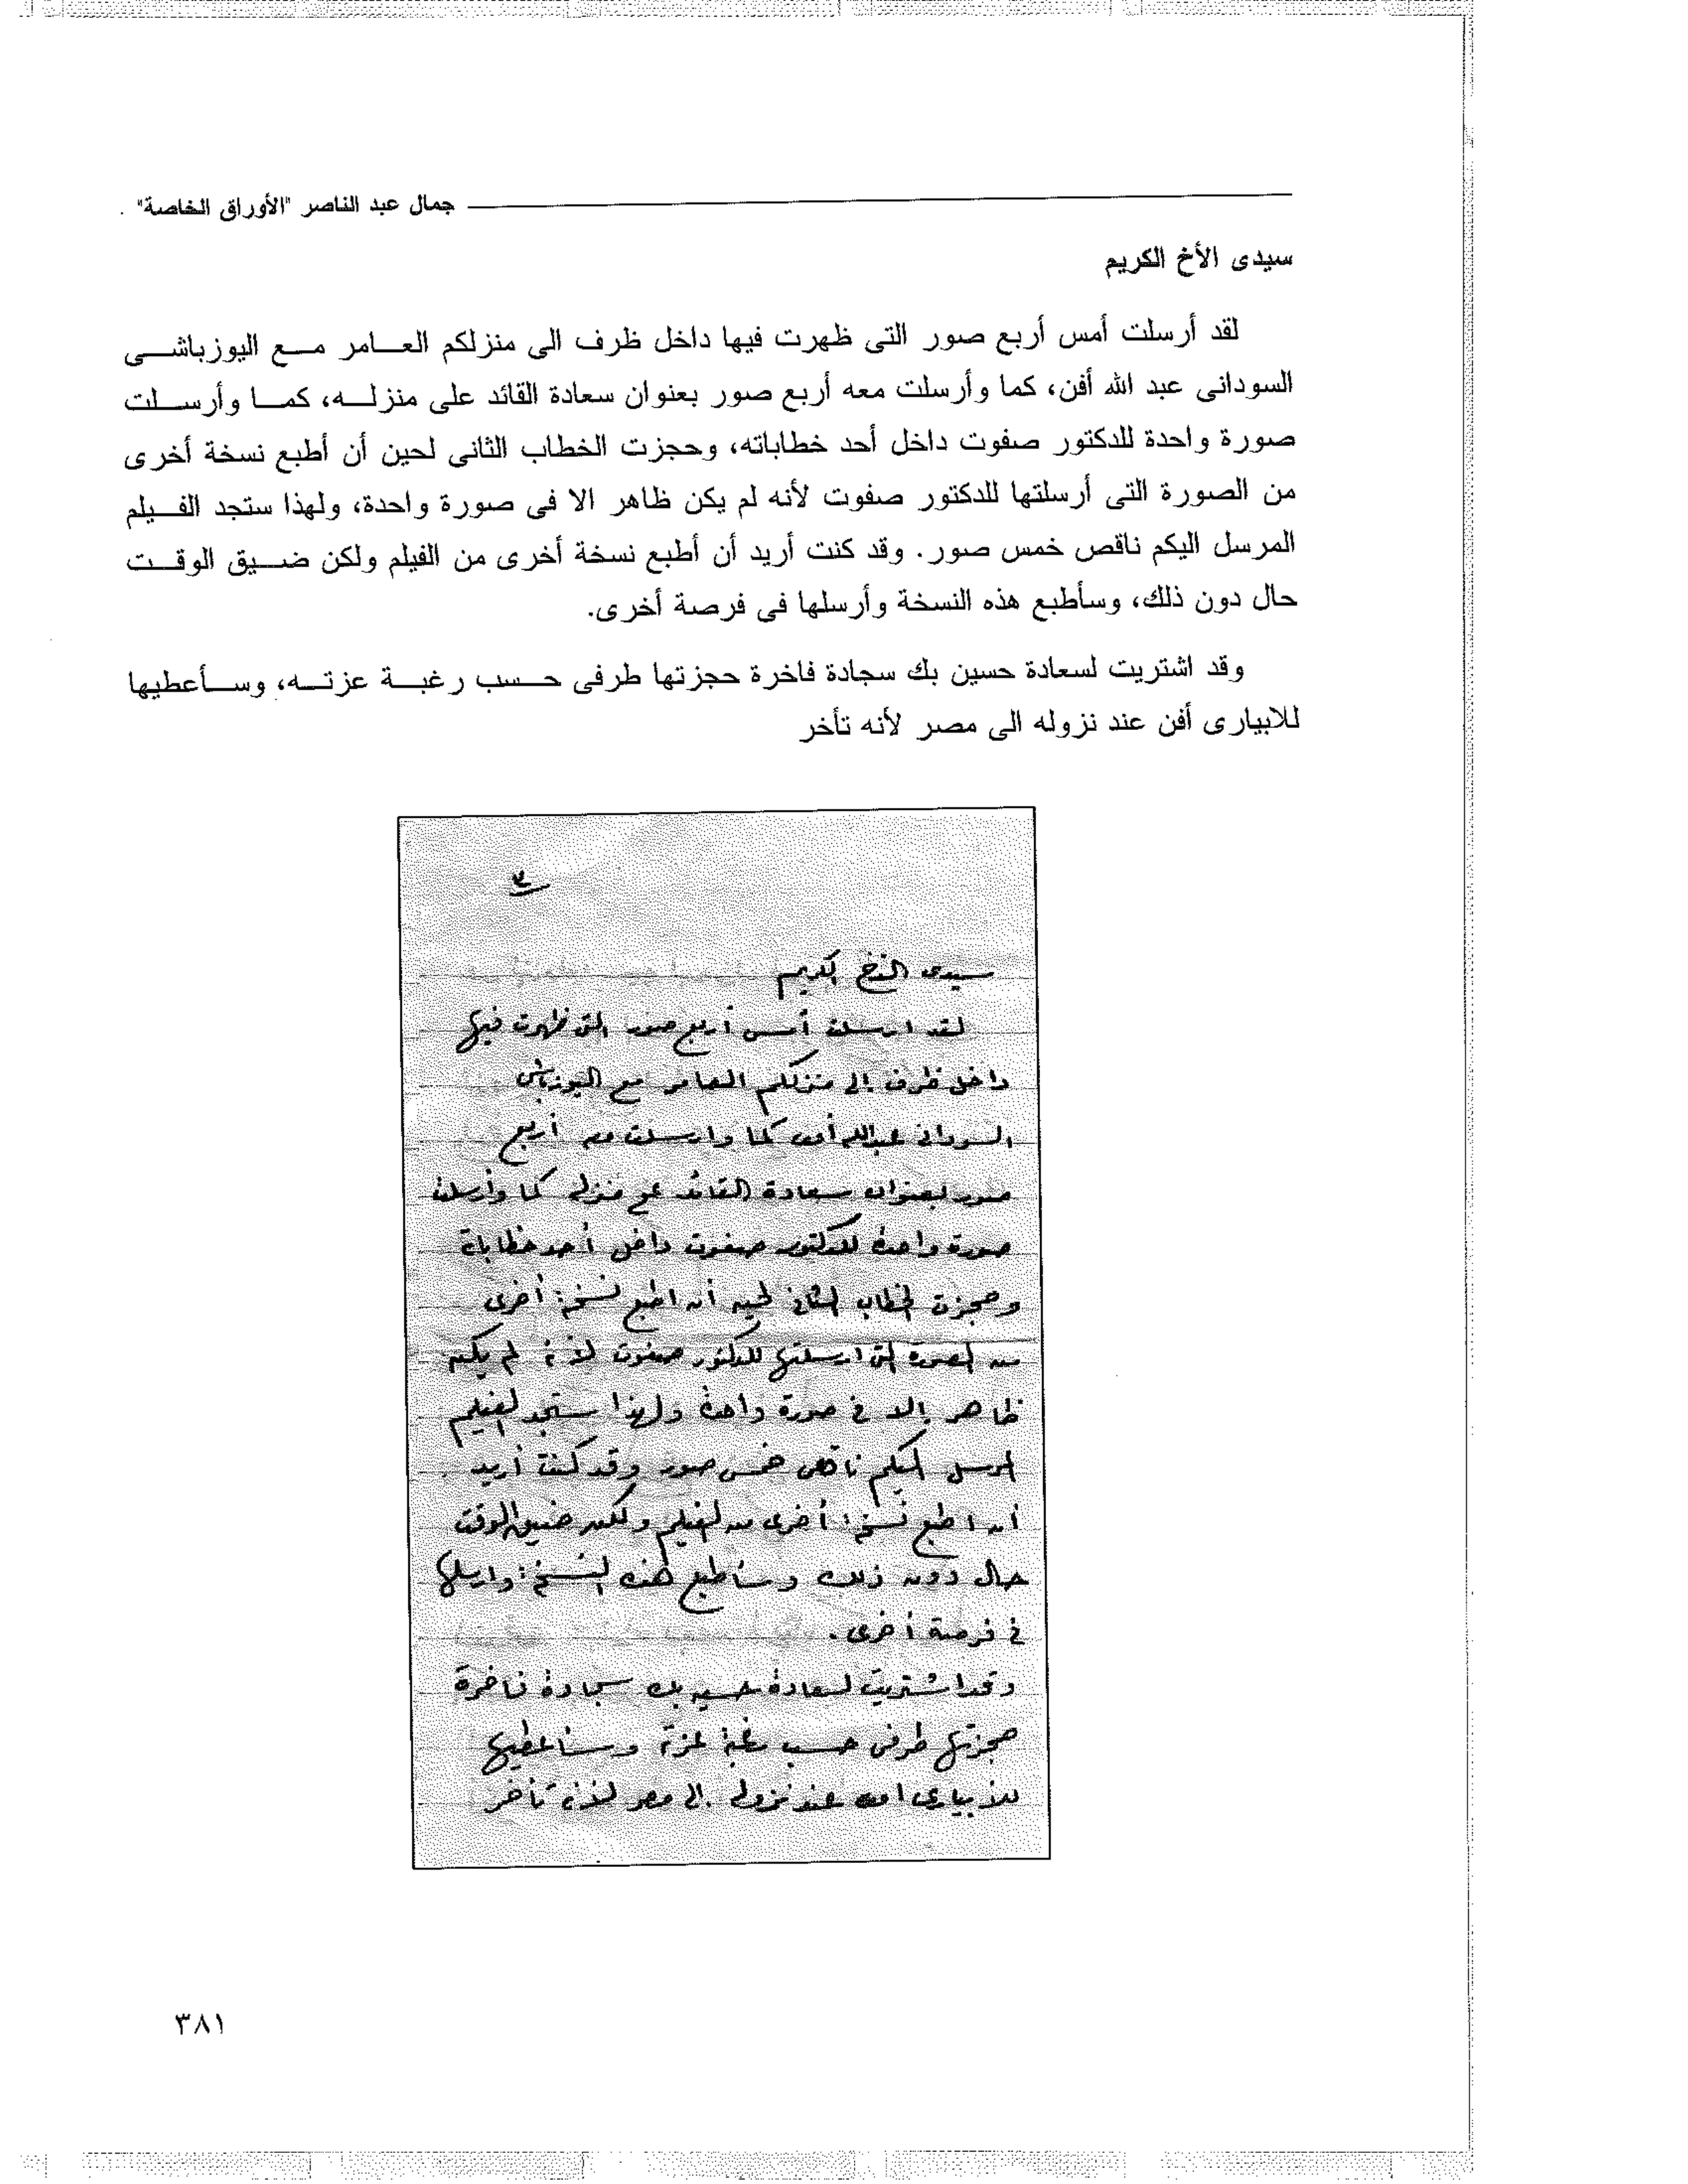 جمال عبد الناصر "الأوراق الخاصة" .
سيدى الأخ الكريم
لقد أرسلت أمس أربع صور التى ظهرت فيها داخل ظرف الى منزلكم العامر مع اليوزباشى
السودانى عبد الله أفن، كما وأرسلت معه أربع صور بعنوان سعادة القائد على منزله، كما وأرسلت
صورة واحدة للدكتور صفوت داخل أحد خطاباته، وحجزت الخطاب الثانى لحين أن أطبع نسخة أخرى
من الصورة التى أرسلتها للدكتور صفوت لأنه لم يكن ظاهر الا فى صورة واحدة، ولهذا ستجد الفيلم
المرسل اليكم ناقص خمس صور. وقد كنت أريد أن أطبع نسخة أخرى من الفيلم ولكن ضيق الوقت
حال دون ذلك، وسأطبع هذه النسخة وأرسلها فى فرصة أخرى.
وقد اشتريت لسعادة حسين بك سجادة فاخرة حجزتها طرفى حسب رغبة عزته، وسأعطيها
للابيارى أفن عند نزوله الى مصر لأنه تأخر
سيدى الأخ الكريم
لقد ارسلت أمس أربع صور التى ظهرت فيها
داخل ظرف إلى منزلكم العامر مع اليوزباشى
السودانى عبدالله أفن كما وارسلت معه أربع
صور بعنوان سعادة القائد على منزله كما وأرسلت
صورة واحدة للدكتور صفوت داخل أحد خطاباته
وحجزت الخطاب الثانى لحين أن اطبع نسخة أخرى
من الصورة التى ارسلتها للدكتور صفوت لأنه لم يكن
ظاهر إلا فى صورة واحدة ولهذا ستجد الفيلم
المرسل اليكم ناقص خمس صور وقد كنت أريد
أن اطبع نسخة أخرى من الفيلم ولكن ضيق الوقت
حال دون ذلك وسأطبع هذه النسخة وارسلها
فى فرصة أخرى.
وقد اشتريت لسعادة حسين بك سجادة فاخرة
حجزتها طرفى حسب رغبة عزته وسأعطيها
للأبيارى افن عند نزوله إلى مصر لأنه تأخر
٣٨١